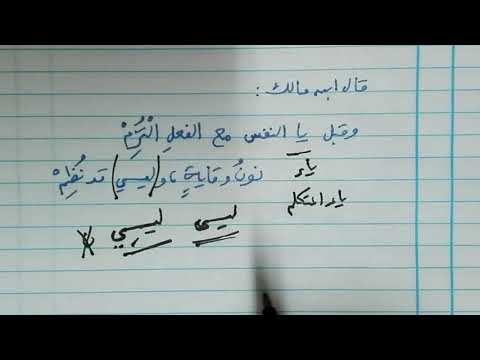 قال ابن مالك :
وقبل يا النفس مع الفعلِ الْتُزِمْ
نونُ وقايةٍ ، و (ليسي) قد نُظِمْ
ياء
ياء المتكلم
ليسى ليسِي